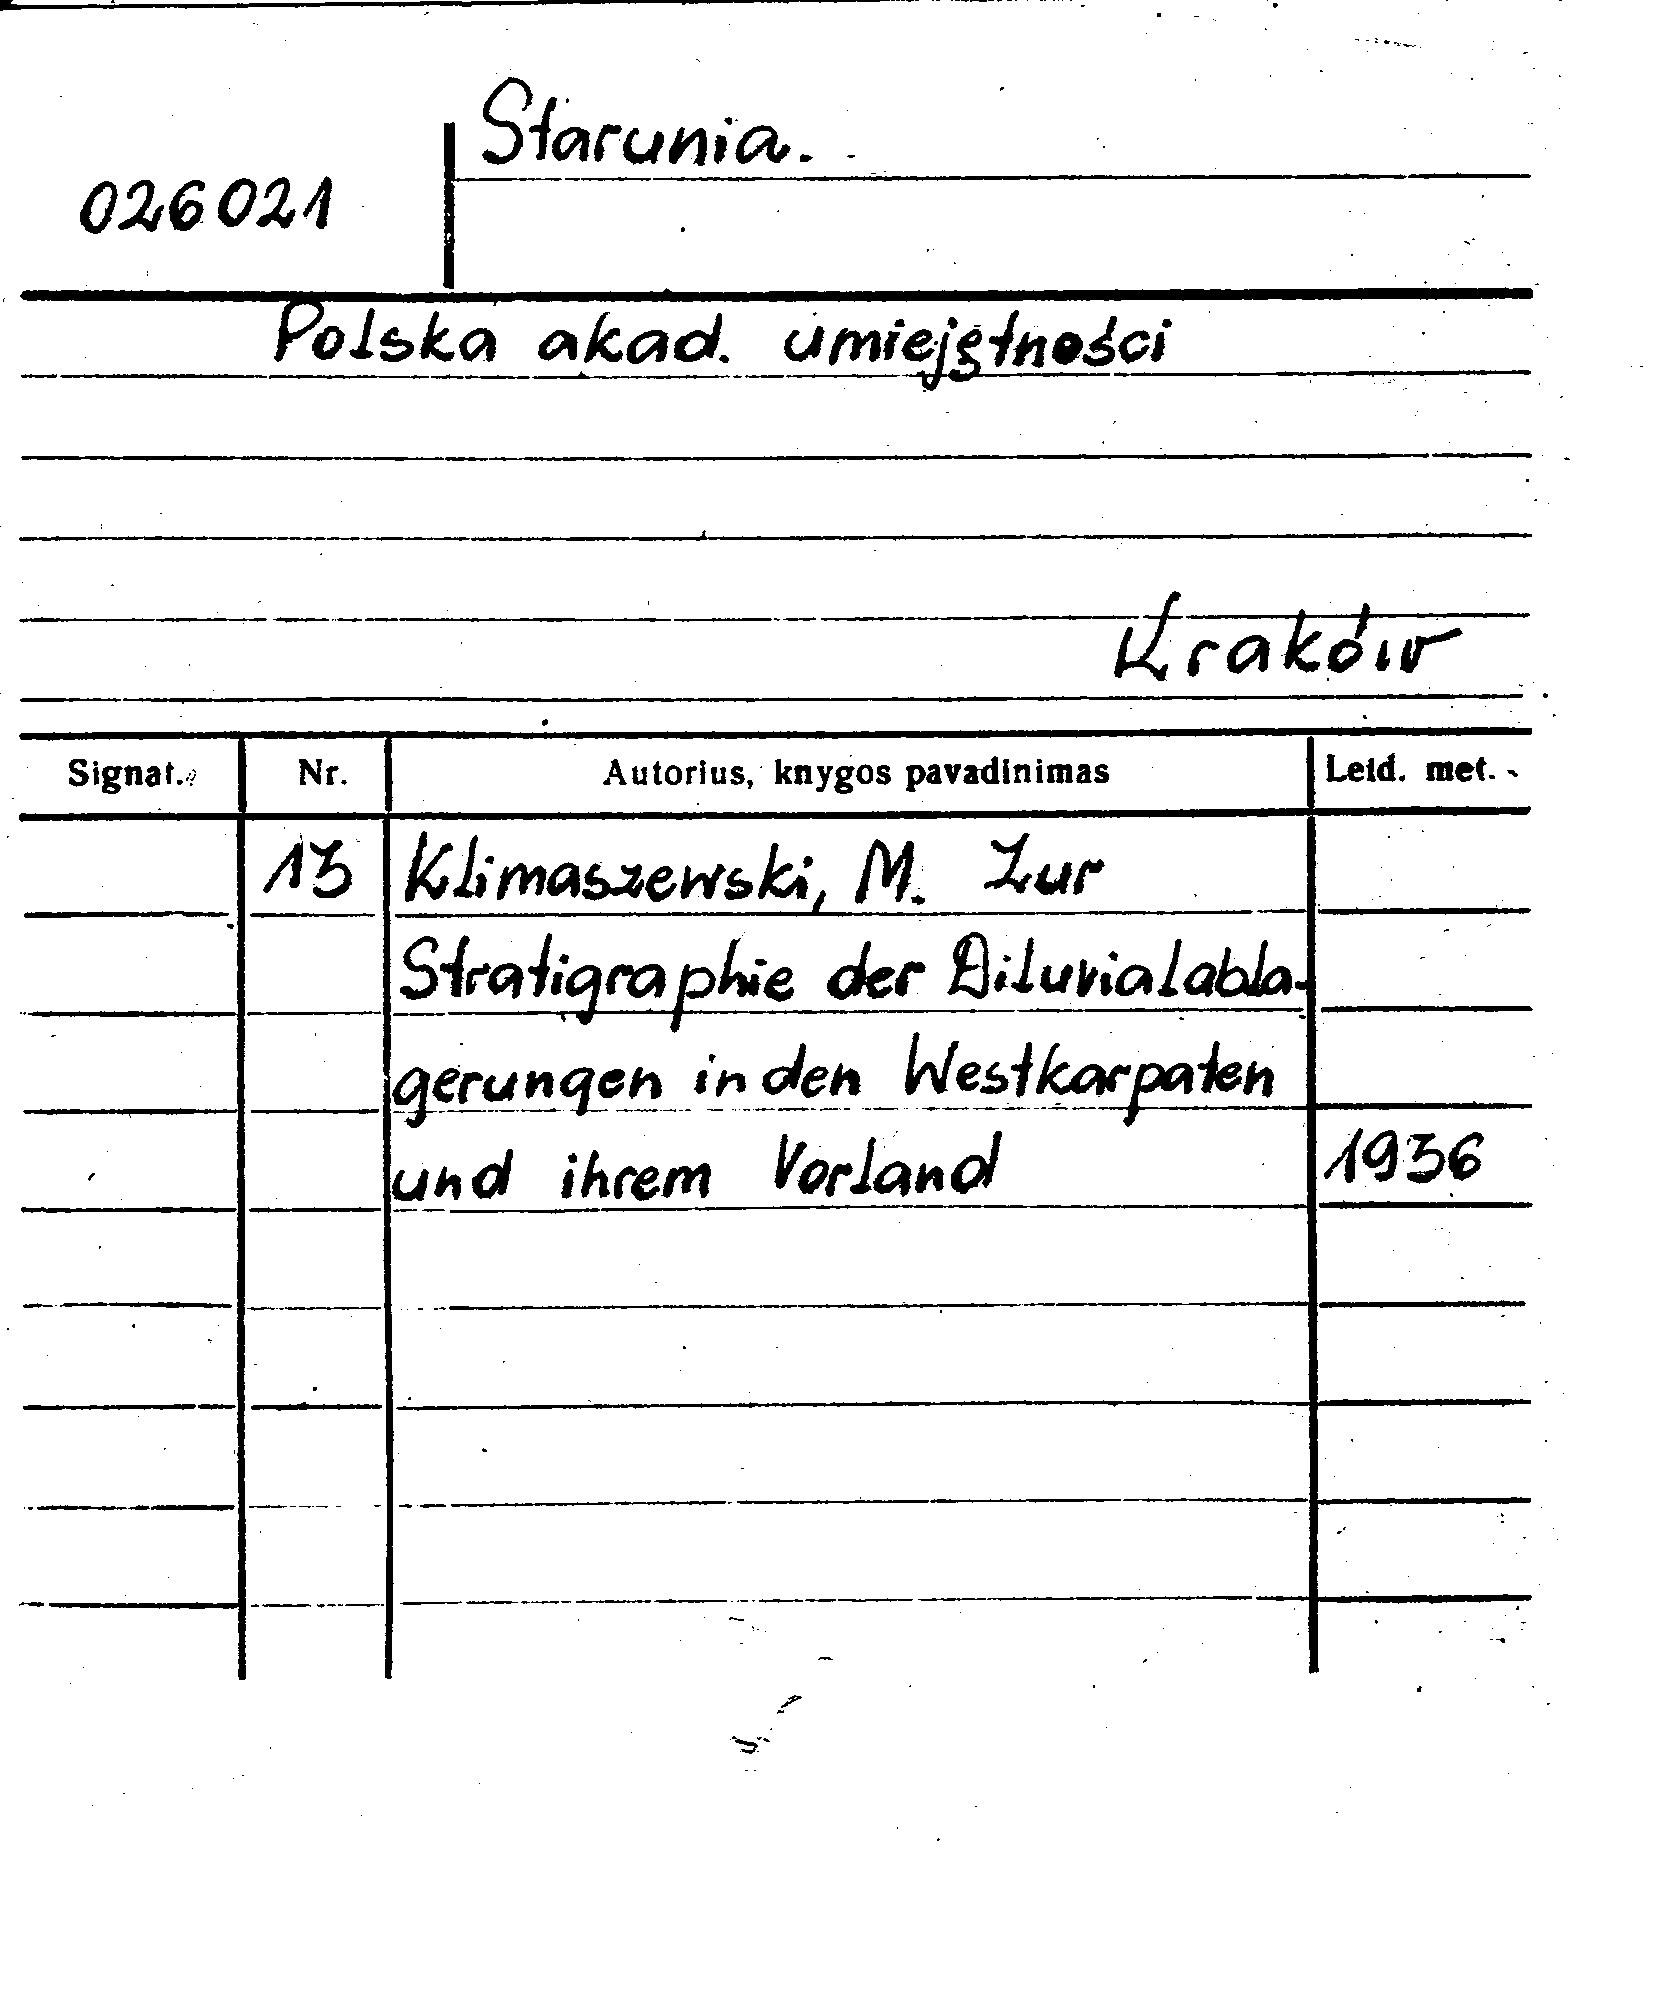 Starunia.
026021
Polska akad. umiejętności
Kraków
Signat. Nr. Autorius, knygos pavadinimas Leid. met.
13 Klimaszewski, M. Zur
Stratigraphie der Diluvialabla-
gerungen in den Westkarpaten
und ihrem Vorland 1936